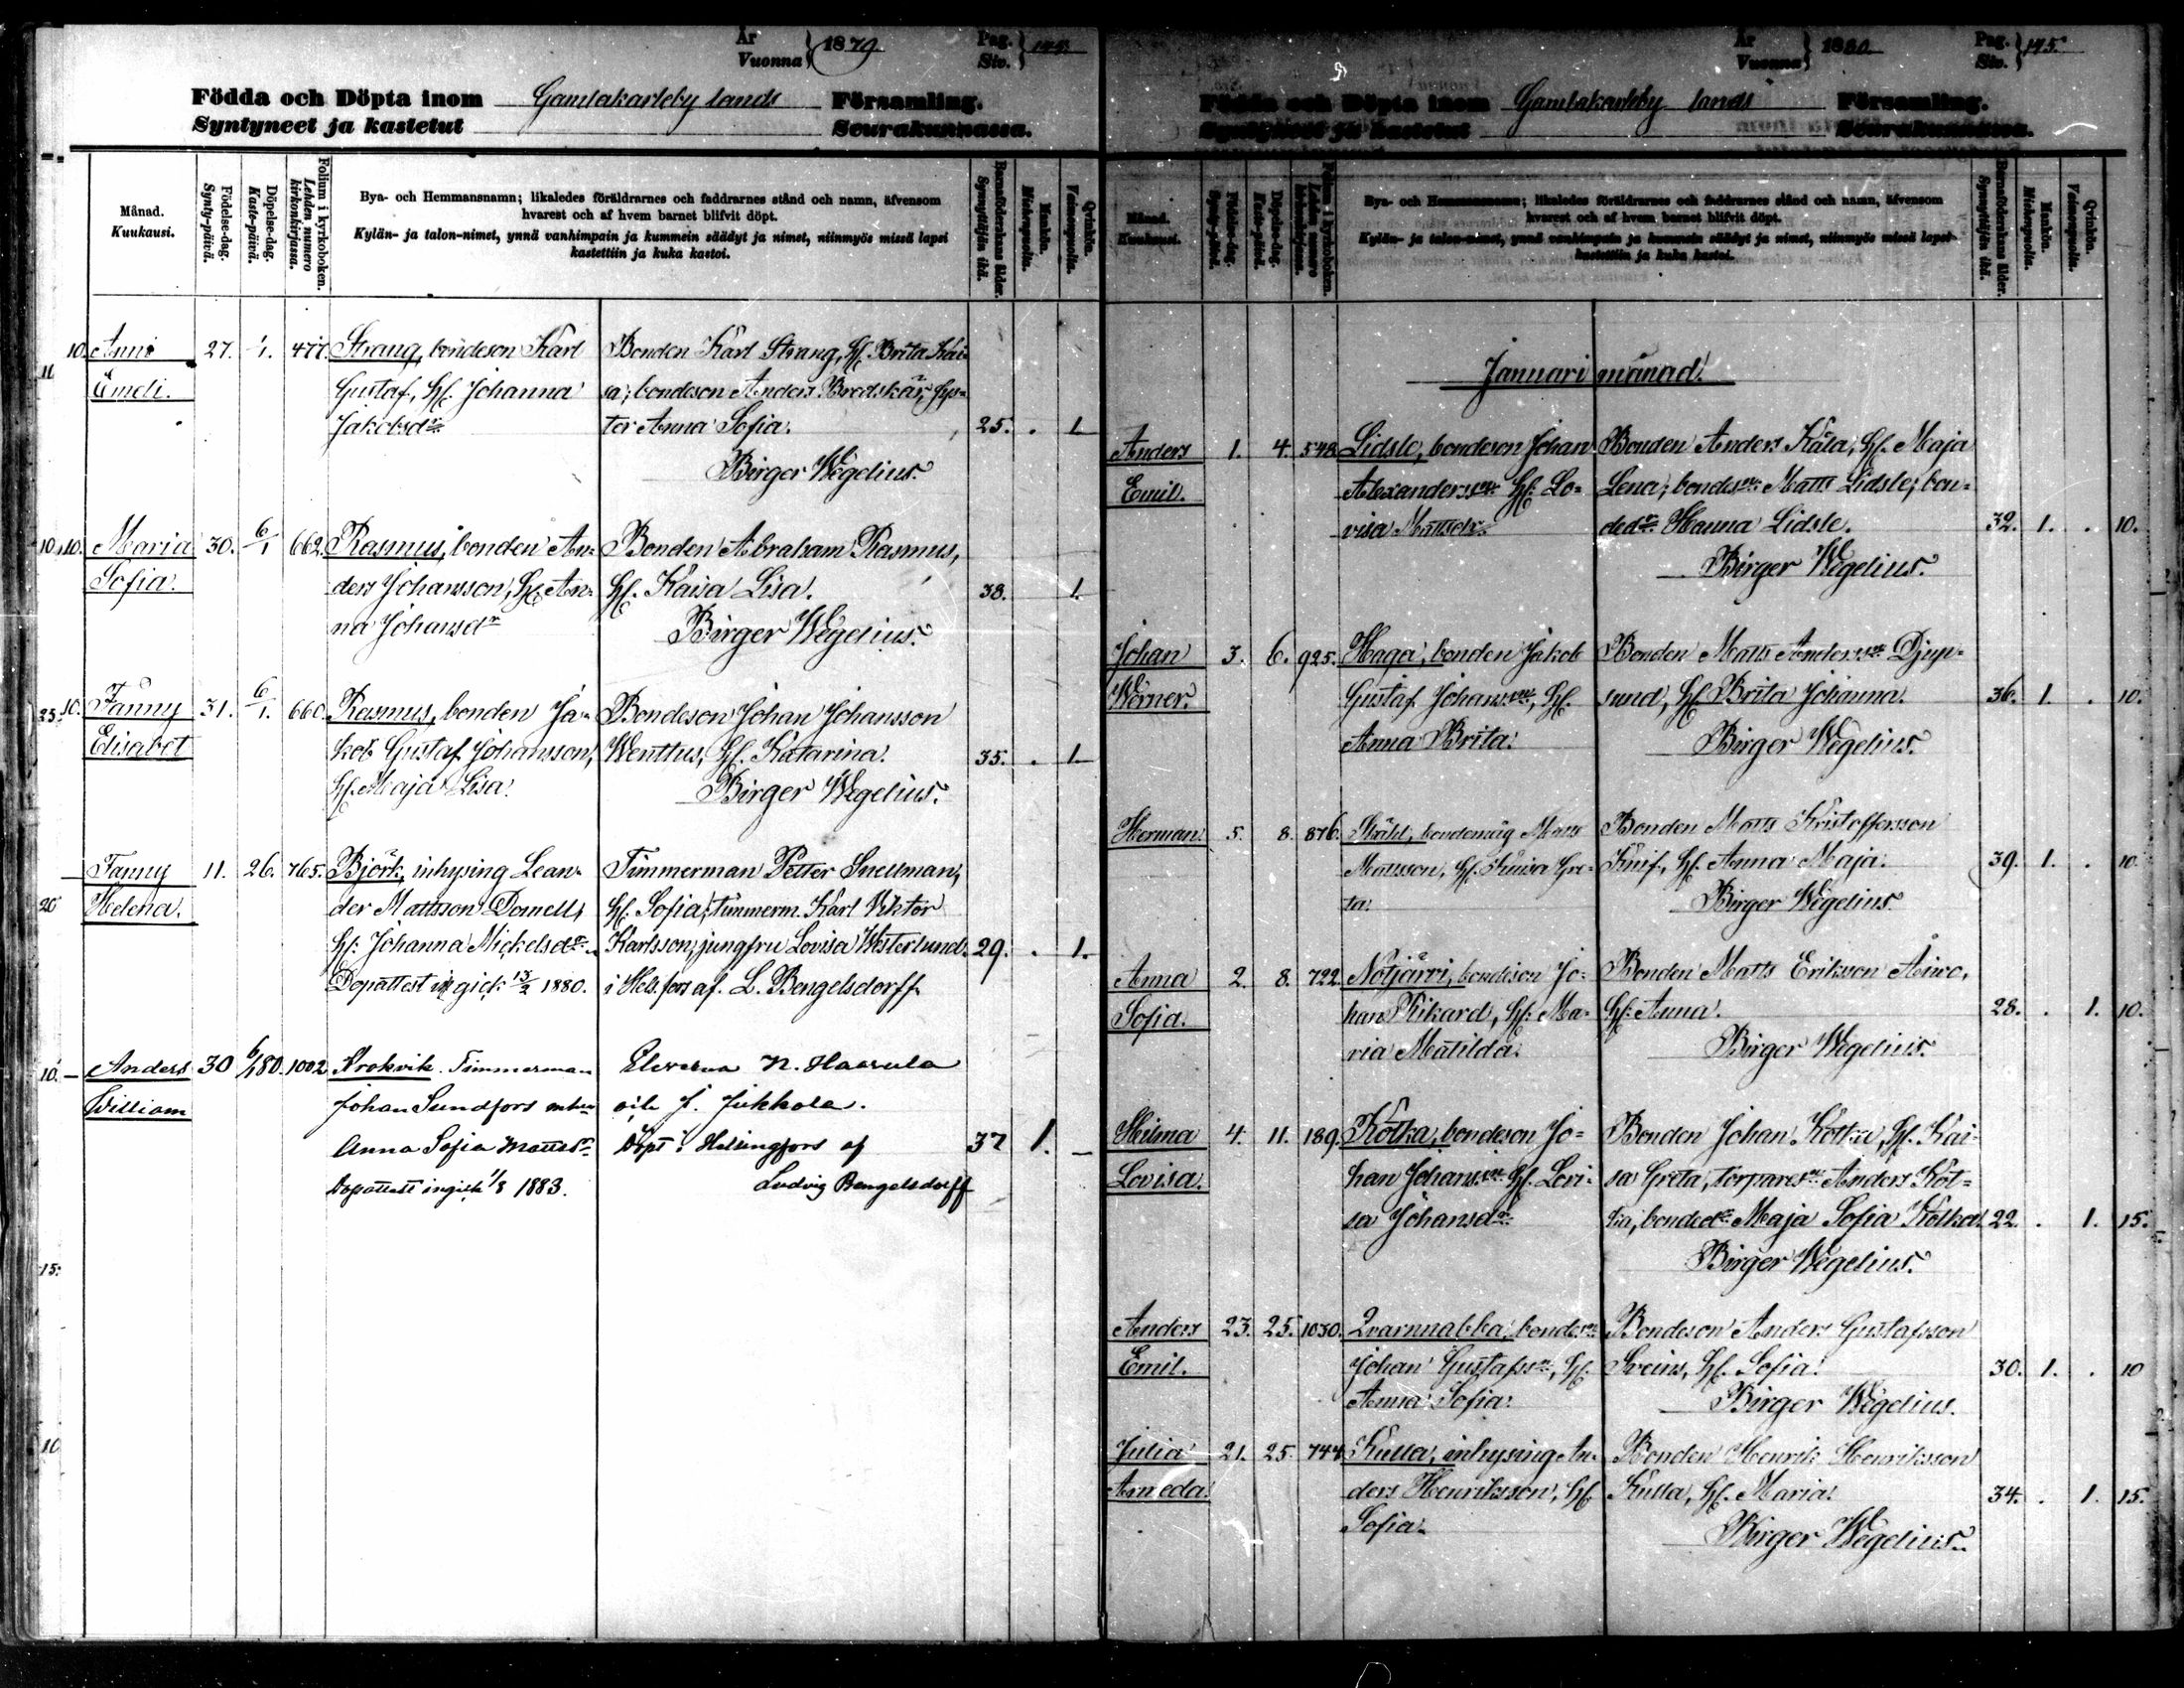 År
Vuonna } 1879.
Pag.
Siv. } 144.
Födda och Döpta inom Gamlakarleby lands Församling.
Syntyneet ja kastetut Seurakunnassa.
Månad.
Kuukausi.
Födelse-dag.
Synty-päivä.
Döpelse-dag.
Kaste-päivä.
Folium i kyrkoboken.
Lehden numero
kirkonkirjassa.
Bya- och Hemmansnamn; likaledes föräldrarnes och faddrarnes stånd och namn, äfvensom
hvarest och af hvem barnet blifvit döpt.
Kylän- ja talon-nimet, ynnä vanhimpain ja kummein säädyt ja nimet, niinmyös missä lapsi
kastettiin ja kuka kastoi.
Barnaföderskans ålder.
Synnyttäjän ikä.
Mankön.
Miehenpuolta.
Qvinkön.
Vaimonpuolta.
10. Anni 27. 1/1. 477. Strang, bondeson Karl Bonden Karl Strang, Hf. Brita Kai-
11
Emeli. Gustaf, Hf. Johanna sa; bondeson Anders Bredskär, hus-
Jakobsdr. ter Anna Sofia. 25. . 1.
Birger Wegelius.
10. 10. Maria 30. 6/1 662. Rasmus, bonden An- Bonden Abraham Rasmus,
Sofia. ders Johansson, Hf. An- Hf. Kaisa Lisa. 38. 1.
na Johansdr Birger Wegelius.
25. 10. Fanny 31. 6/1. 660. Rasmus, bonden Ja- Bondeson Johan Johansson
Elisabet kob Gustaf Johansson, Wenttus, Hf. Katarina. 35. . 1.
Hf. Maja Lisa. Birger Wegelius.
Fanny 11. 26. 765. Björk, inhysing Lean- Timmerman Petter Snellman,
20 Helena. der Mattsson Domell, Hf. Sofia; timmerm. Karl Viktor
Hf. Johanna Mickelsdr. Karlsson, jungfru Lovisa Westerlund. 29. . 1.
Dopattest ingick 13/2 1880. i Helsfors af L. Bengelsdorff.
10. – Anders 30 6/1 80. 1002 Krokvik. Timmerman N. Haavula
William Johan Sundfors J. Jukkola.
Anna Sofia Mattsdr Döpt i Helsingfors af 37 1. –
Dopattest ingick 1/8 1883. Ludvig Bengelsdorff
15.
10
År
Vuonna } 1880.
Pag.
Siv. } 145.
Födda och Döpta inom Gamlakarleby lands Församling.
Syntyneet ja kastetut Seurakunnassa.
Månad.
Kuukausi.
Födelse-dag.
Synty-päivä.
Döpelse-dag.
Kaste-päivä.
Folium i kyrkoboken.
Lehden numero
kirkonkirjassa.
Bya- och Hemmansnamn; likaledes föräldrarnes och faddrarnes stånd och namn, äfvensom
hvarest och af hvem barnet blifvit döpt.
Kylän- ja talon-nimet, ynnä vanhimpain ja kummein säädyt ja nimet, niinmyös missä lapsi
kastettiin ja kuka kastoi.
Barnaföderskans ålder.
Synnyttäjän ikä.
Mankön.
Miehenpuolta.
Qvinkön.
Vaimonpuolta.
Januari månad.
Anders 1. 4. 548. Lidsle, bondeson Johan Bonden Anders Kåla, Hf. Maja
Emil. Alexanderson Hf. Lo- Lena; bondeson Matts Lidsle; bon-
visa Mattsdr. dedr. Hanna Lidsle. 32. 1. . 10.
Birger Wegelius.
Johan 3. 6. 925. Haga, bonden Jakob Bonden Matts Andersson Djup-
Werner. Gustaf Johansson, Hf. sund, Hf. Brita Johanna. 36. 1. . 10.
Anna Brita. Birger Wegelius.
Herman. 5. 8. 876. Ståhl, bondemåg Matts Bonden Matts Kristoffersson
Mattsson, Hf. Kaisa Gre- Knif, Hf. Anna Maja. 39. 1. . 10.
ta. Birger Wegelius.
Anna 2. 8. 722. Notjärvi, bondeson Jo- Bonden Matts Erikson Aivo,
Sofia. han Rikard, Hf. Ma- Hf. Anna. 28. . 1. 10.
ria Matilda. Birger Wegelius.
Hilma 4. 11. 189. Kotka, bondeson Jo- Bonden Johan Kotka, Hf. Kai-
Lovisa. han Johansson Hf. Lovi- sa Greta, torpareson Anders Kot-
sa Johansdr. ka, bondedr. Maja Sofia Kotka. 22. . 1. 15.
Birger Wegelius.
Anders 23. 25. 1030. Qvarnnabba, bondeson Bondeson Anders Gustafsson
Emil. Johan Gustafsson, Hf. Sveins, Hf. Sofia. 30. 1. . 10
Anna Sofia. Birger Wegelius.
Julia 21. 25. 744 Kulla, inhysing An- Bonden Henrik Henriksson
Ameda. ders Henriksson, Hf. Kulla, Hf. Maria. 34. . 1. 15.
Sofia. Birger Wegelius.